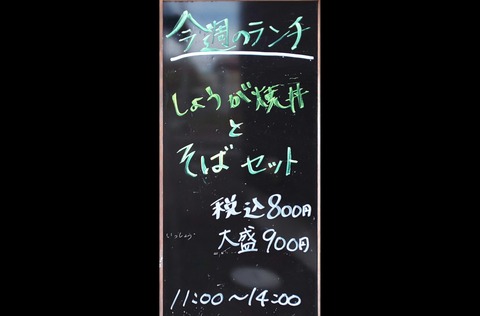 今週のランチ
しょうが焼丼
と
そばセット
税込800円
大盛900円
11:00〜14:00